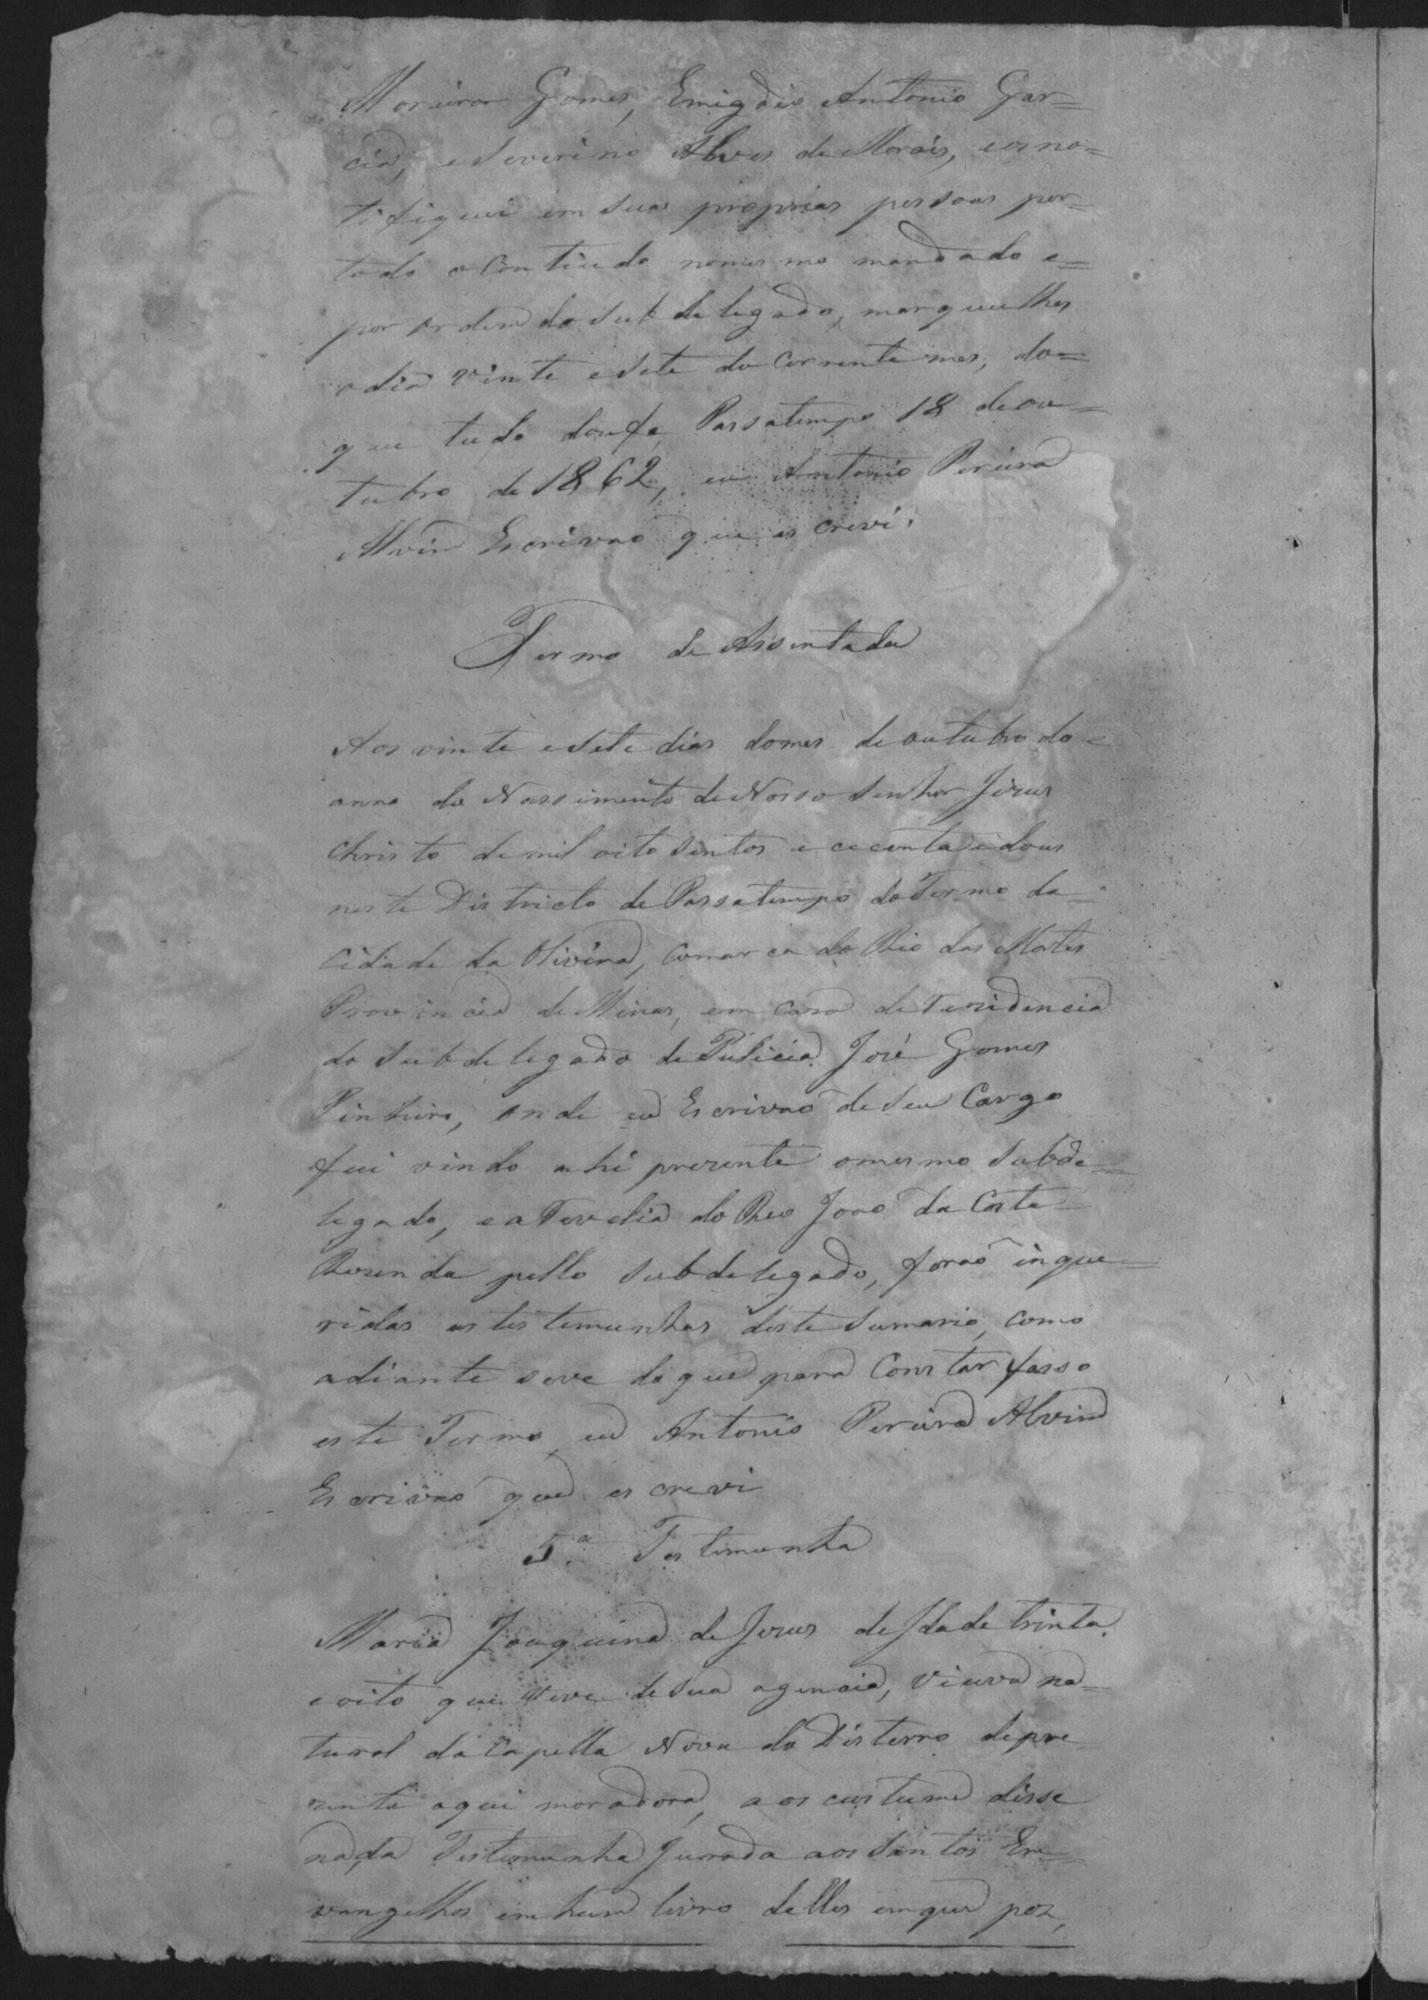 Moreira Gomes, Emigdio Antonio Gar=
cia, e Severino Alves de Morais, e os no=
tifiquei em suas proprias pessoas por=
todo o Contiudo nomesmo mandado e=
por ordem do Subdelegado, marqueilhes
odia vinte e Sete do Corrente mes, do=
que tudo dou fe, Passatempo 18 de ou=
tubro de 1862, eu Antonio Pereira
Alvim Escrivaõ que escrevi.
Termo de Assentada
Aos vinte e Sete dias domes de outubro do=
anno do Nassimento de Nosso Senhor Jezus
Christo de mil oito Sentos e cecenta e dous
neste Districto de Passatempo do Termo da=
Cidade da Oliveira, Comarca do Rio das Mortes
Provincia de Minas, em Casa de rezidencia
do Subdelegado de Pulicia José Gomes
Pinheiro, onde eu Escrivaõ de Seu Cargo
fui vindo ahi prezente omesmo Subde=
legado, e a revelia do Reo Joaõ da Costa
Rezenda pello Subdelegado, foraõ inque=
ridas as testemunhas deste Sumario, como
adiante seve do que para Constar fasso
este Termo eu Antonio Pereira Alvim
Escrivaõ que escrevi
5.ª Testemunha
Maria Joaquina de Jezus de Idade trinta
e oito que vive de Sua agencia, Viuva na=
tural da Capella Nova do Disterro depre
zente aqui moradora, aos custume disse
nada Testemunha Jurada aos Santos Ev=
vangelhos em hum livro delles em que poz,